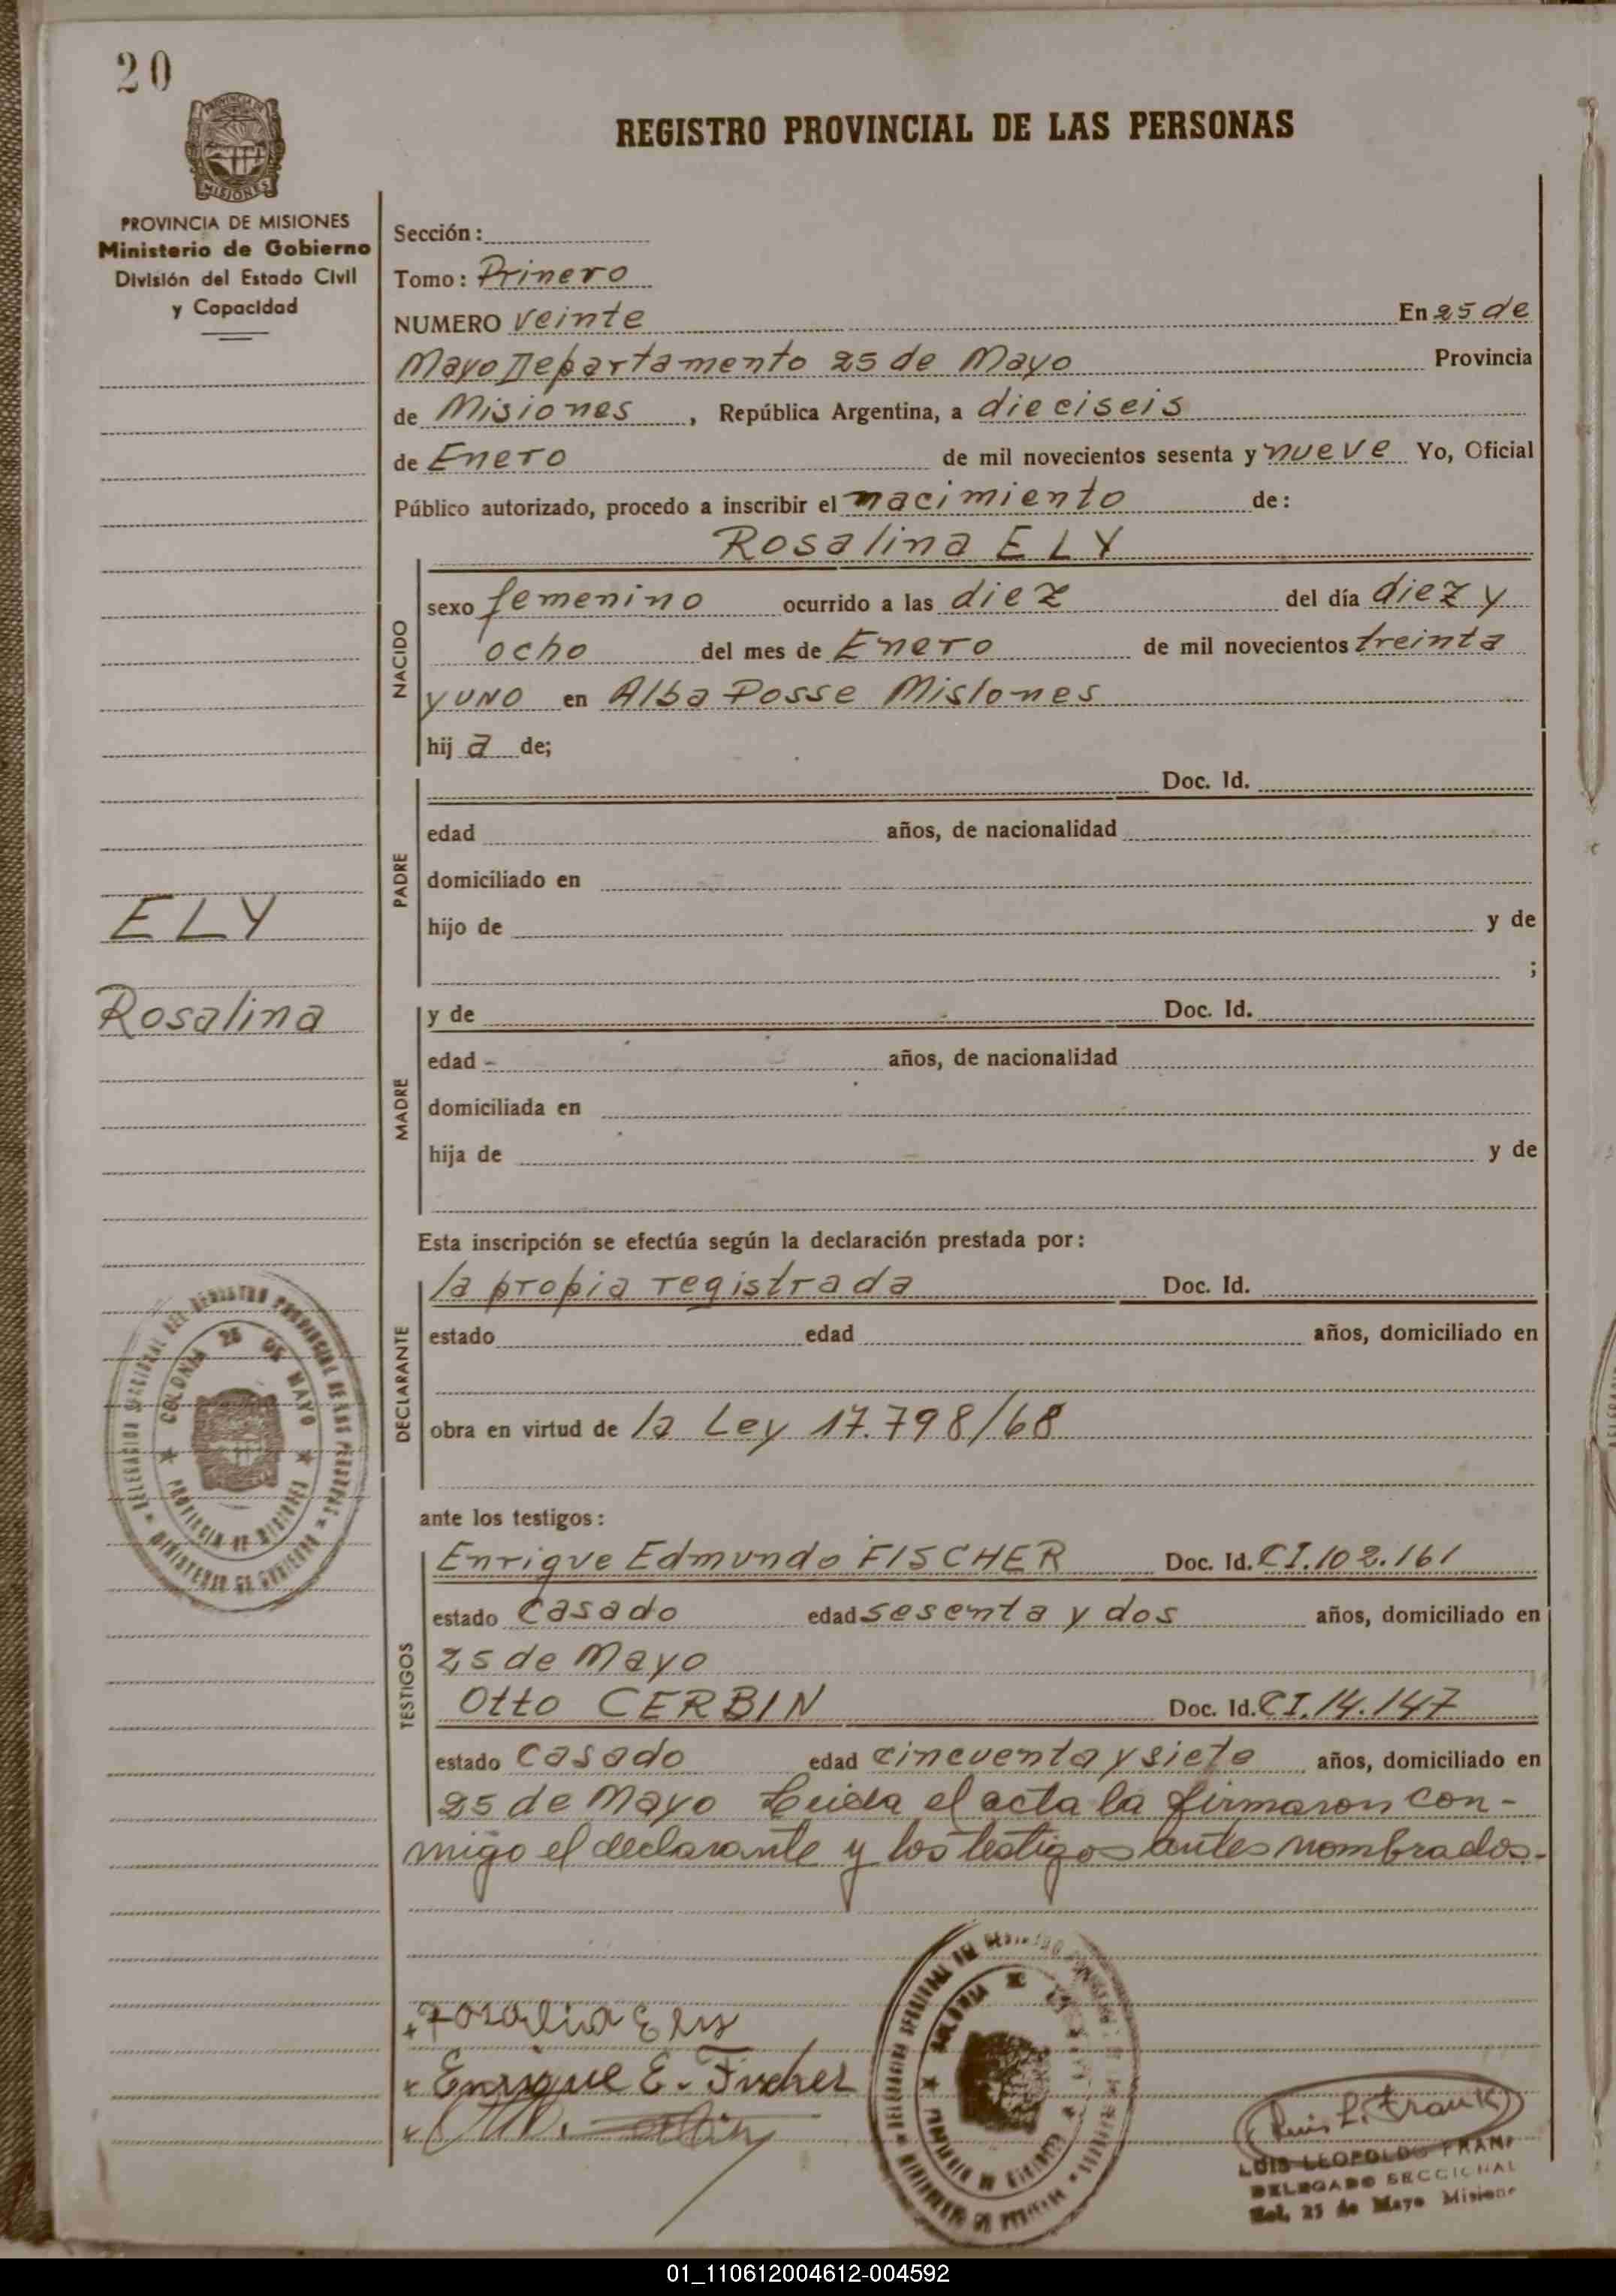 20
PROVINCIA DE
MISIONES
REGISTRO PROVINCIAL DE LAS PERSONAS
PROVINCIA DE MISIONES
Ministerio de Gobierno
División del Estado Civil
y Capacidad
Sección:
Tomo: Prinero
NUMERO veinte En 25 de
Mayo Departamento 25 de Mayo Provincia
de Misiones, República Argentina, a dieciseis
de Enero de mil novecientos sesenta y nueve Yo, Oficial
Público autorizado, procedo a inscribir el nacimiento de:
Rosalina ELY
NACIDO
sexo femenino ocurrido a las diez del día diez y
ocho del mes de Enero de mil novecientos treinta
y uno en Alba Posse Misiones
hij a de;
PADRE
Doc. Id.
edad años, de nacionalidad
domiciliado en
hijo de y de
;
ELY
Rosalina
MADRE
y de Doc. Id.
edad - años, de nacionalidad
domiciliada en
hija de y de
Esta inscripción se efectúa según la declaración prestada por:
DECLARANTE
la propia registrada Doc. Id.
estado edad años, domiciliado en
obra en virtud de la Ley 17.798/68
DELEGACION SECCIONAL DEL REGISTRO PROVINCIAL DE LAS PERSONAS
MINISTERIO DE GOBIERNO
COLONIA 25 DE MAYO
PROVINCIA DE MISIONES
ante los testigos:
TESTIGOS
Enrique Edmundo FISCHER Doc. Id. CI.102.161
estado casado edad sesenta y dos años, domiciliado en
25 de Mayo
Otto CERBIN Doc. Id. CI.14.147
estado casado edad cincuenta y siete años, domiciliado en
25 de Mayo Leida el acta la firmaron con-
migo el declarante y los testigos antes nombrados.-
Rosalina Ely
Enrique E. Fischer
Luis L. Frank
LUIS LEOPOLDO FRANK
DELEGADO SECCIONAL
Col. 25 de Mayo Misiones
01_110612004612-004592